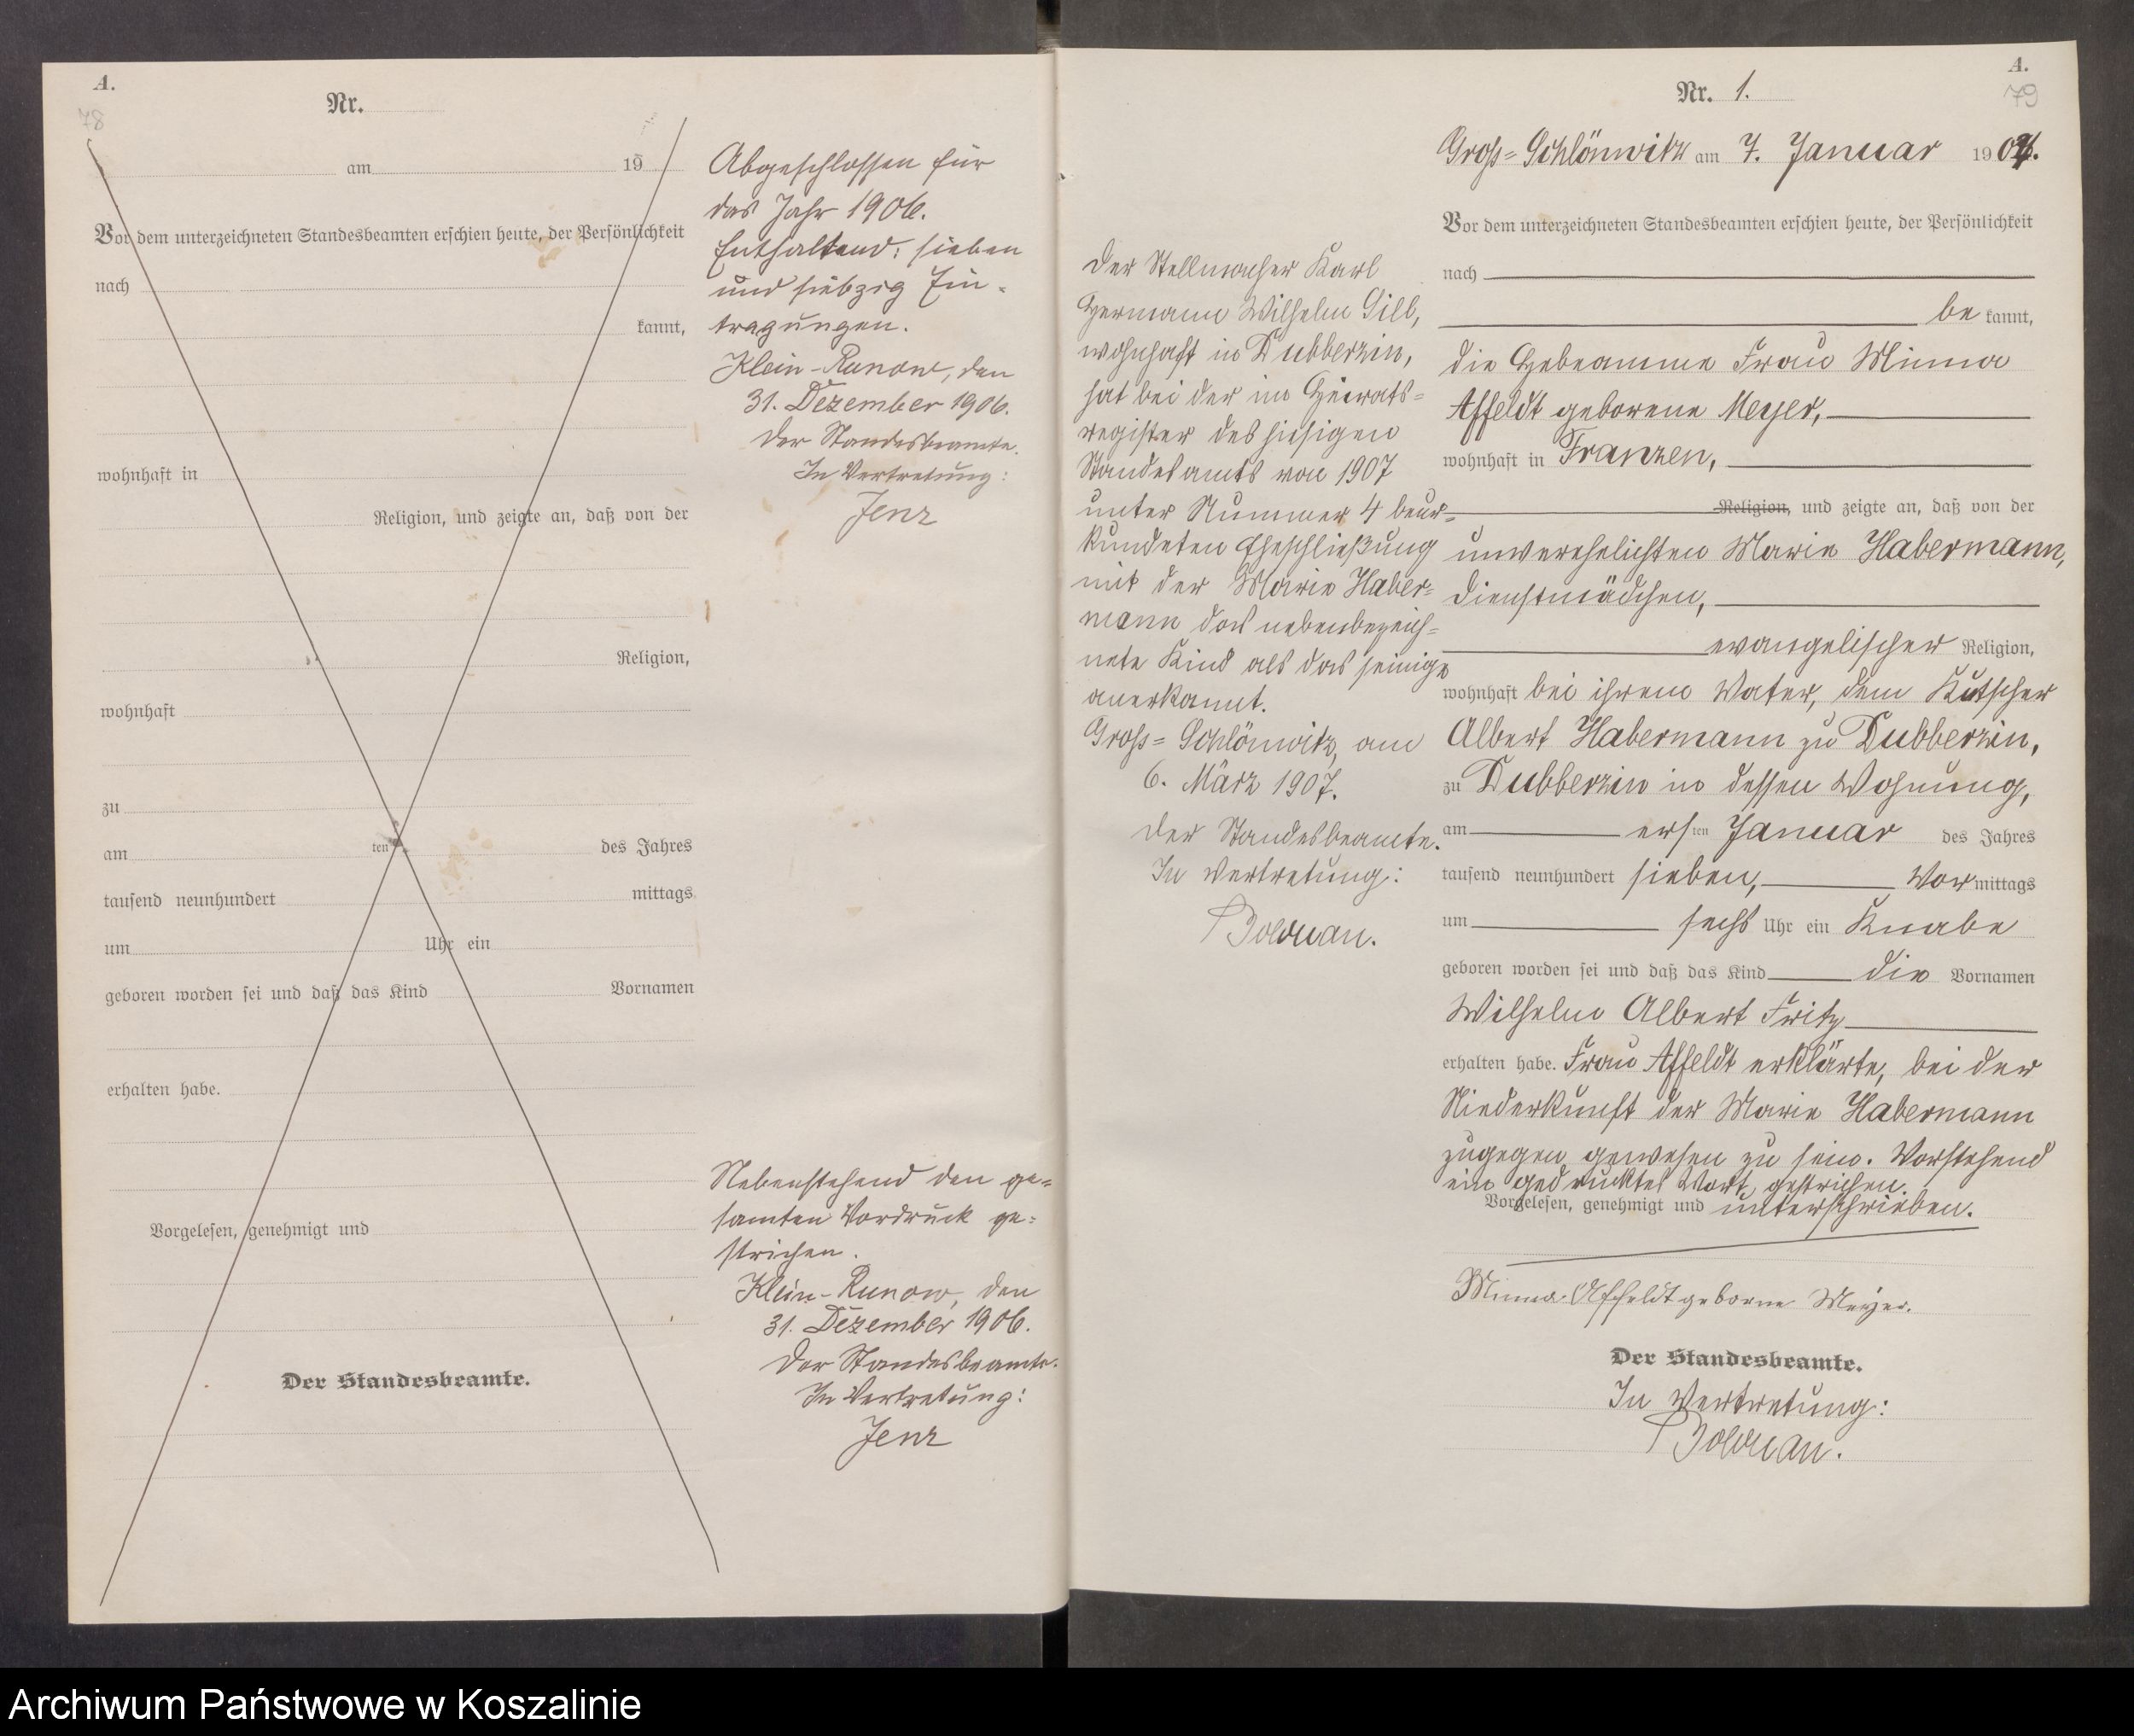 A.
78
Nr.
am 19
Vor dem unterzeichneten Standesbeamten erschien heute, der Persönlichkeit
nach
kannt,
wohnhaft in
Religion, und zeigte an, daß von der
Religion,
wohnhaft
zu
am ten des Jahres
tausend neunhundert mittags
um Uhr ein
geboren worden sei und daß das Kind Vornamen
erhalten habe.
Vorgelesen, genehmigt und
Der Standesbeamte.
Abgeschlossen für
das Jahr 1906.
Enthaltend: sieben
und siebzig Ein-
tragungen.
Klein-Runow, den
31. Dezember 1906.
Der Standesbeamte.
In Vertretung:
Jenz
Nebenstehend den ge-
samten Vordruck ge-
strichen.
Klein-Runow, den
31. Dezember 1906.
Der Standesbeamte.
In Vertretung:
Jenz
A.
79
Nr. 1.
Gross=Schlönwitz am 7. Januar 1907.
Vor dem unterzeichneten Standesbeamten erschien heute, der Persönlichkeit
nach
be kannt,
die Hebeamme Frau Minna
Affeldt geborene Meyer,
wohnhaft in Franzen,
Religion, und zeigte an, daß von der
unverehelichten Marie Habermann,
Dienstmädchen,
evangelischer Religion,
wohnhaft bei ihrem Vater, dem Kutscher
Albert Habermann zu Dubberzin,
zu Dubberzin in dessen Wohnung,
am ersten Januar des Jahres
tausend neunhundert sieben, Vor mittags
um sechs Uhr ein Knabe
geboren worden sei und daß das Kind die Vornamen
Wilhelm Albert Fritz
erhalten habe. Frau Affeldt erklärte, bei der
Niederkunft der Marie Habermann
zugegen gewesen zu sein. Vorstehend
ein gedrucktes Wort gestrichen.
Vorgelesen, genehmigt und unterschrieben.
Minna Affeldt geborne Meyer.
Der Standesbeamte.
In Vertretung:
Bolduan.
Der Stellmacher Karl
Hermann Wilhelm Gill,
wohnhaft in Dubberzin,
hat bei der im Heirats=
register des hiesigen
Standesamts von 1907
unter Nummer 4 beur=
kundeten Eheschließung
mit der Marie Haber=
mann das nebenbezeich=
nete Kind als das seinige
anerkannt.
Gross=Schlönwitz, am
6. März 1907.
Der Standesbeamte.
In Vertretung:
Bolduan.
Archiwum Państwowe w Koszalinie